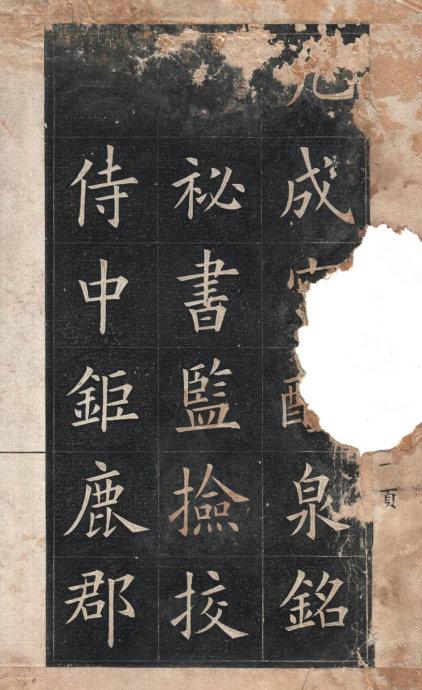 一頁
九成泉銘
祕書監撿挍
侍中鉅鹿郡